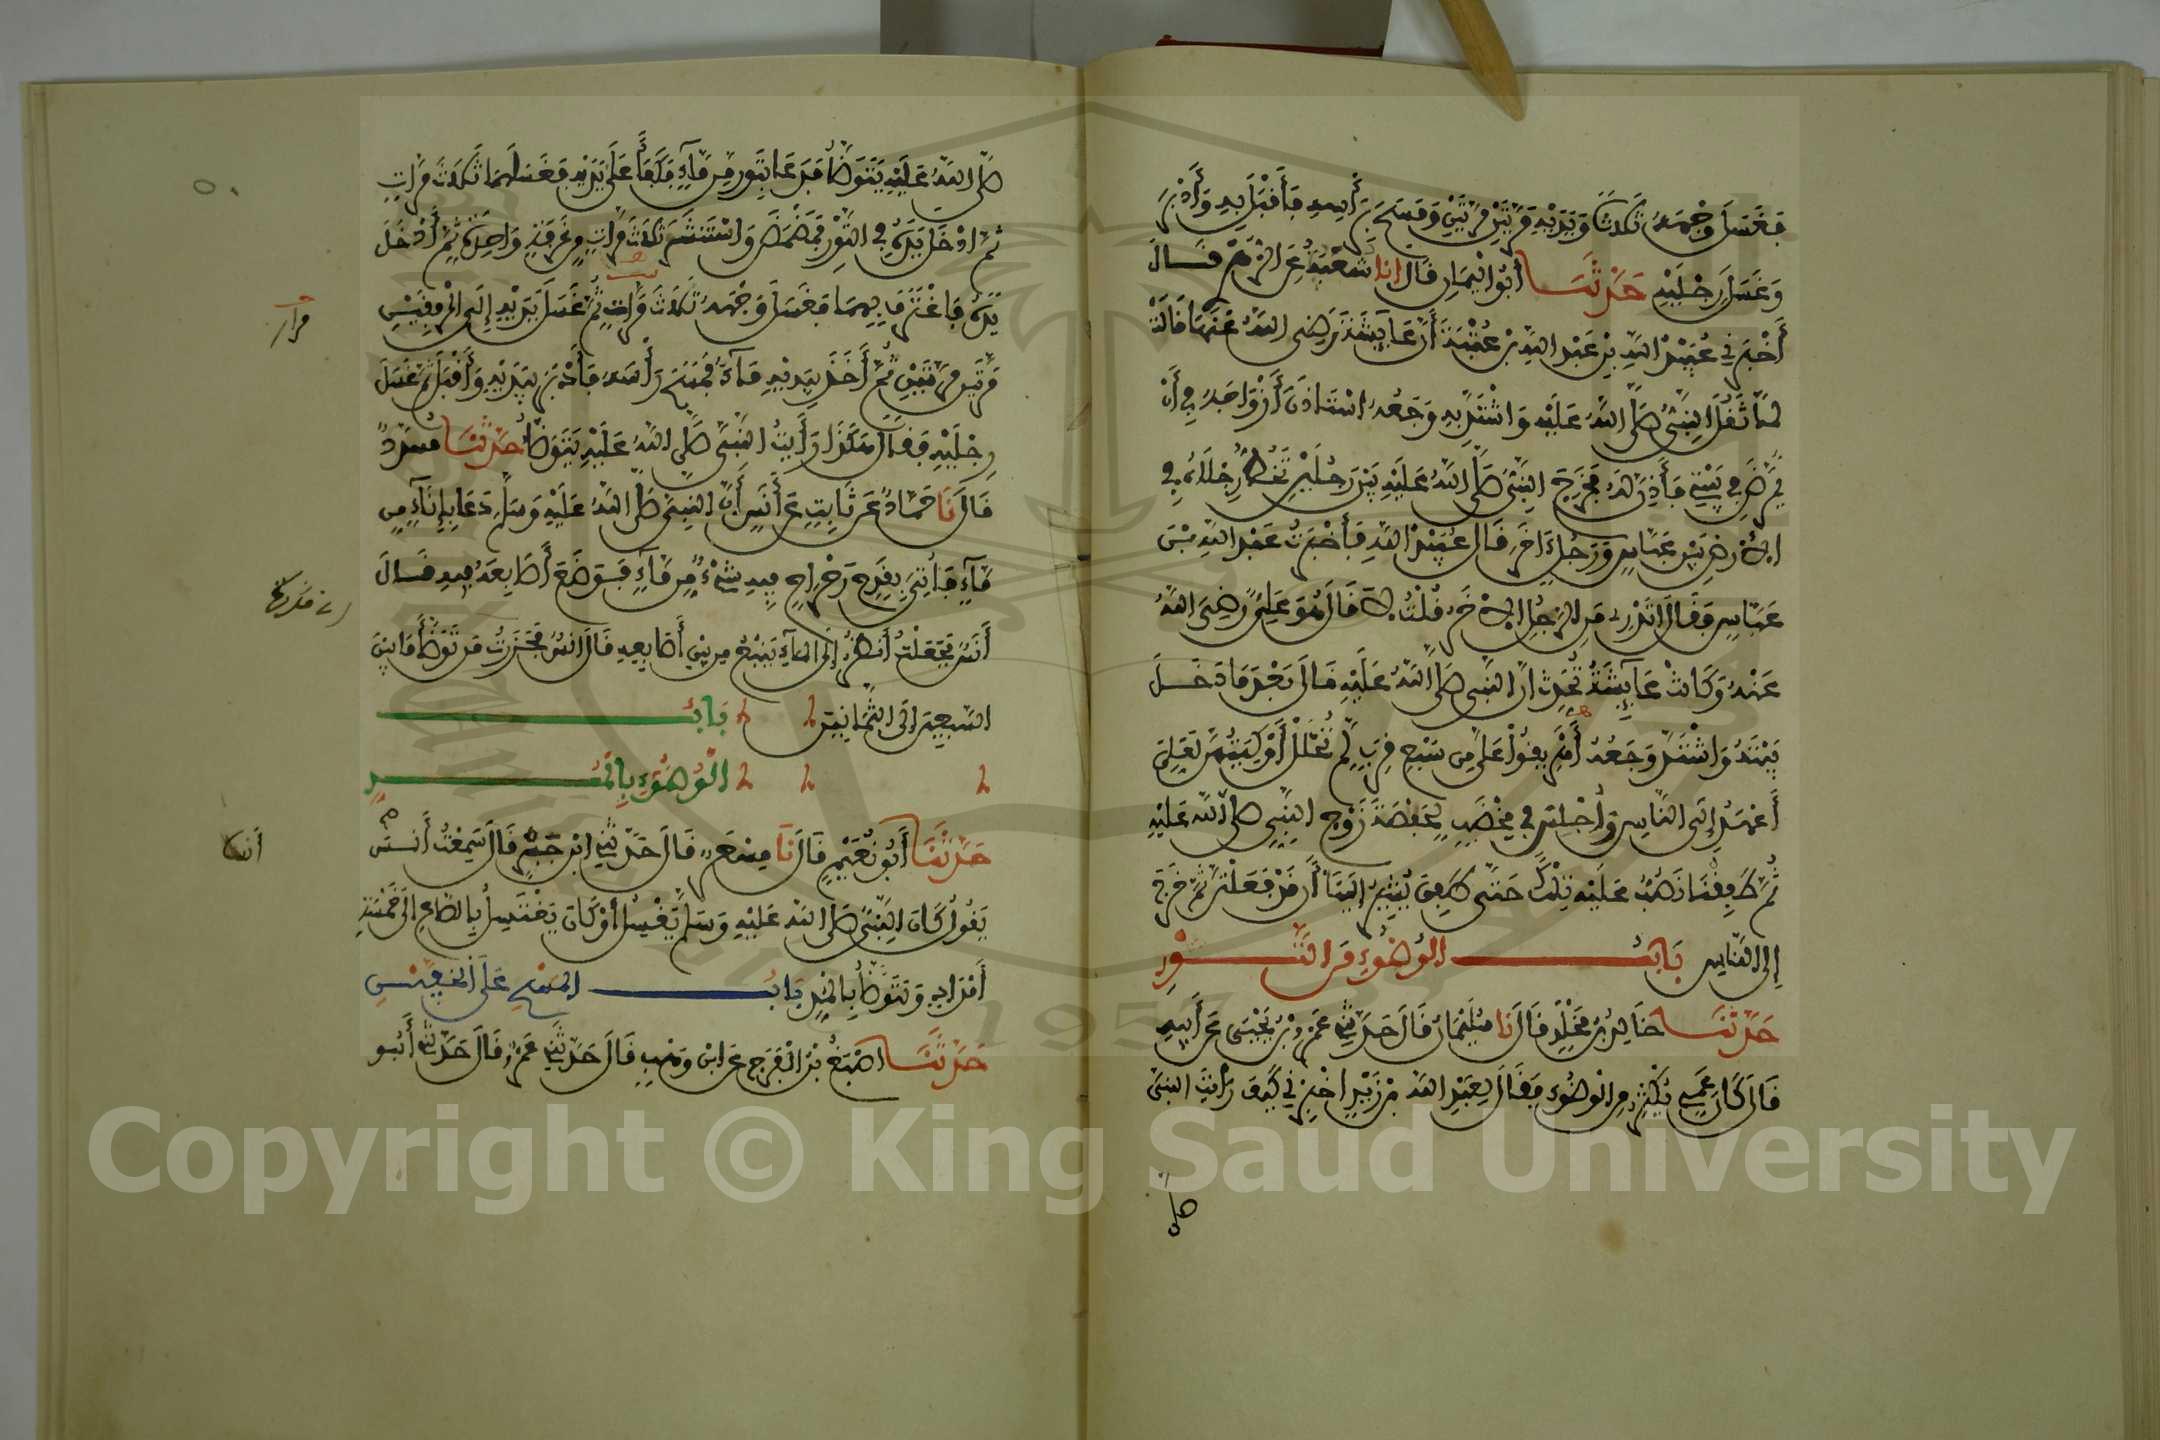 فَغَسَلَ وَجْهَهُ ثَلَاثًا وَيَدَيْهِ مَرَّتَيْنِ مَرَّتَيْنِ وَمَسَحَ بِرَأْسِهِ فَأَقْبَلَ بِهِ وَأَدْبَرَ
وَغَسَلَ رِجْلَيْهِ حَدَّثَنَا أَبُو الْيَمَانِ قَالَ أنا شُعَيْبٌ عَنِ الزُّهْرِي قَالَ
أَخْبَرَنِي عُبَيْدُ اللهِ بْنُ عَبْدِ اللهِ بْنِ عُتْبَةَ أَنَّ عَائِشَةَ رَضِيَ اللهُ عَنْهَا قَالَتْ
لَمَّا ثَقُلَ النَّبِيُّ صَلَّى اللهُ عَلَيْهِ وَاشْتَدَّ بِهِ وَجَعُهُ اسْتَأْذَنَ أَزْوَاجَهُ فِي أَنْ
يُمَرَّضَ فِي بَيْتِي فَأَذِنَّ لَهُ فَخَرَجَ النَّبِيُّ صَلَّى اللهُ عَلَيْهِ بَيْنَ رَجُلَيْنِ تَخُطُّ رِجْلَاهُ فِي
الْأَرْضِ بَيْنَ عَبَّاسٍ وَرَجُلٍ آخَرَ قَالَ عُبَيْدُ اللهِ فَأَخْبَرْتُ عَبْدَ اللهِ بْنَ
عَبَّاسٍ فَقَالَ أَتَدْرِي مَنِ الرَّجُلُ الْآخَرُ قُلْتُ لَا قَالَ هُوَ عَلِيٌّ رَضِيَ اللهُ
عَنْهُ وَكَانَتْ عَائِشَةُ تُحَدِّثُ أَنَّ النَّبِيَّ صَلَّى اللهُ عَلَيْهِ قَالَ بَعْدَ مَا دَخَلَ
بَيْتَهُ وَاشْتَدَّ وَجَعُهُ أَهْرِيقُوا عَلَيَّ مِنْ سَبْعِ قِرَبٍ لَمْ تُحْلَلْ أَوْكِيَتُهُنَّ لَعَلِّي
أَعْهَدُ إِلَى النَّاسِ وَأُجْلِسَ فِي مِخْضَبٍ لِحَفْصَةَ زَوْجِ النَّبِيِّ صَلَّى اللهُ عَلَيْهِ
ثُمَّ طَفِقْنَا نَصُبُّ عَلَيْهِ تِلْكَ حَتَّى طَفِقَ يُشِيرُ إِلَيْنَا أَنْ قَدْ فَعَلْتُنَّ ثُمَّ خَرَجَ
إِلَى النَّاسِ بَابُ الْوُضُوءِ مِنَ التَّوْرِ
حَدَّثَنَا خَالِدُ بْنُ مَخْلَدٍ قَالَ نا سُلَيْمَانُ قَالَ حَدَّثَنِي عَمْرُو بْنُ يَحْيَى عَنْ أَبِيهِ
قَالَ كَانَ عَمِّي يُكْثِرُ مِنَ الْوُضُوءِ فَقَالَ لِعَبْدِ اللهِ بْنِ زَيْدٍ أَخْبِرْنِي كَيْفَ رَأَيْتَ النَّبِيَّ
صلى
صَلَّى اللهُ عَلَيْهِ يَتَوَضَّأُ فَدَعَا بِتَوْرٍ مِنْ مَاءٍ فَكَفَأَ عَلَى يَدَيْهِ فَغَسَلَهُمَا ثَلَاثَ مَرَّاتٍ
ثُمَّ أَدْخَلَ يَدَهُ فِي التَّوْرِ فَمَضْمَضَ وَاسْتَنْشَقَ ثَلَاثَ مَرَّاتٍ مِنْ غَرْفَةٍ وَاحِدَةٍ ثُمَّ أَدْخَلَ
يَدَهُ فَاغْتَرَفَ بِهِمَا فَغَسَلَ وَجْهَهُ ثَلَاثَ مَرَّاتٍ ثُمَّ غَسَلَ يَدَيْهِ إِلَى الْمِرْفَقَيْنِ
مَرَّتَيْنِ مَرَّتَيْنِ ثُمَّ أَخَذَ بِيَدَيْهِ مَاءً فَمَسَحَ رَأْسَهُ فَأَدْبَرَ بِيَدَيْهِ وَأَقْبَلَ ثُمَّ غَسَلَ
رِجْلَيْهِ فَقَالَ هَكَذَا رَأَيْتُ النَّبِيَّ صَلَّى اللهُ عَلَيْهِ يَتَوَضَّأُ حَدَّثَنَا مُسَدَّدٌ
قَالَ نَا حَمَّادٌ عَنْ ثَابِتٍ عَنْ أَنَسٍ أَنَّ النَّبِيَّ صَلَّى اللهُ عَلَيْهِ وَسَلَّمَ دَعَا بِإِنَاءٍ مِنْ
مَاءٍ فَأُتِيَ بِقَدَحٍ رَحْرَاحٍ فِيهِ شَيْءٌ مِنْ مَاءٍ فَوَضَعَ أَصَابِعَهُ فِيهِ قَالَ
أَنَسٌ فَجَعَلْتُ أَنْظُرُ إِلَى الْمَاءِ يَنْبُعُ مِنْ بَيْنِ أَصَابِعِهِ قَالَ أَنَسٌ فَحَزَرْتُ مَنْ تَوَضَّأَ مَا بَيْنَ
السَّبْعِينَ إِلَى الثَّمَانِينَ بَابُ
الْوُضُوءِ بِالْمُدِّ
حَدَّثَنَا أَبُو نُعَيْمٍ قَالَ نَا مِسْعَرٌ قَالَ حَدَّثَنِي ابْنُ جَبْرٍ قَالَ سَمِعْتُ أَنَسَ
يَقُولُ كَانَ النَّبِيُّ صَلَّى اللهُ عَلَيْهِ وَسَلَّمَ يَغْسِلُ أَوْ كَانَ يَغْتَسِلُ بِالصَّاعِ إِلَى خَمْسَةِ
أَمْدَادٍ وَيَتَوَضَّأُ بِالْمُدِّ بَابُ الْمَسْحِ عَلَى الْخُفَّيْنِ
حَدَّثَنَا أَصْبَغُ بْنُ الْفَرَجِ عَنِ ابْنِ وَهْبٍ قَالَ حَدَّثَنِي عَمْرٌو قَالَ حَدَّثَنِي أَبُو
أنسا
Copyright © King Saud University
1957